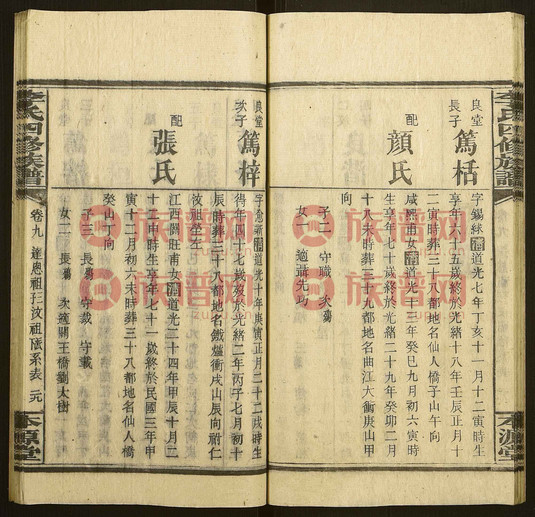 李氏四修族譜
本源堂
良堂
長子
篤栝
配
顔氏
字錫絿清道光七年丁亥十一月十二寅時生
享年六十五歲終於光緒十八年壬辰正月十
二寅時葬三十八都地名仙人橋子山午向
咸熙甫女清道光十三年癸巳九月初六寅時
生享年七十一歲終於光緒二十九年癸卯二月
十八未時葬三十八都地名曲江大衝庚山甲
向
子二 守職 次殤
女一 適聶先巧
良堂
次子
篤梓
配
張氏
清道光十年庚寅正月二十二戌時生
得年四十七歲歿於光緒二年丙子七月初十
辰時葬三十八都地名鐵爐衝戌山辰向祔仁
汝祖坐左
江西國旺甫女清道光二十四年甲辰十月二
十二申時生享年七十一歲終於民國三年甲
寅十二月初六未時葬三十八都地名仙人橋
癸山丁向
子三 長殤 守裁 守載
女二 長殤 次適關王橋劉大樹
李氏四修族譜
卷九 達恩祖
汶祖
系表
本源堂